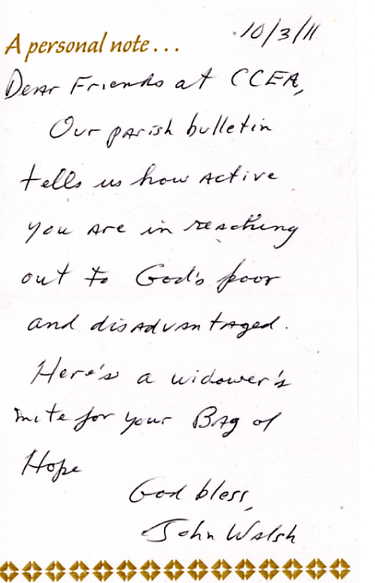 A personal note...
10/3/11
Dear Friends at CCEA,
Our parish bulletin
tells us how active
you are in reaching
out to God's poor
and disadvantaged.
Here's a widower's
mite for your Bag of
Hope
God bless,
John Walsh